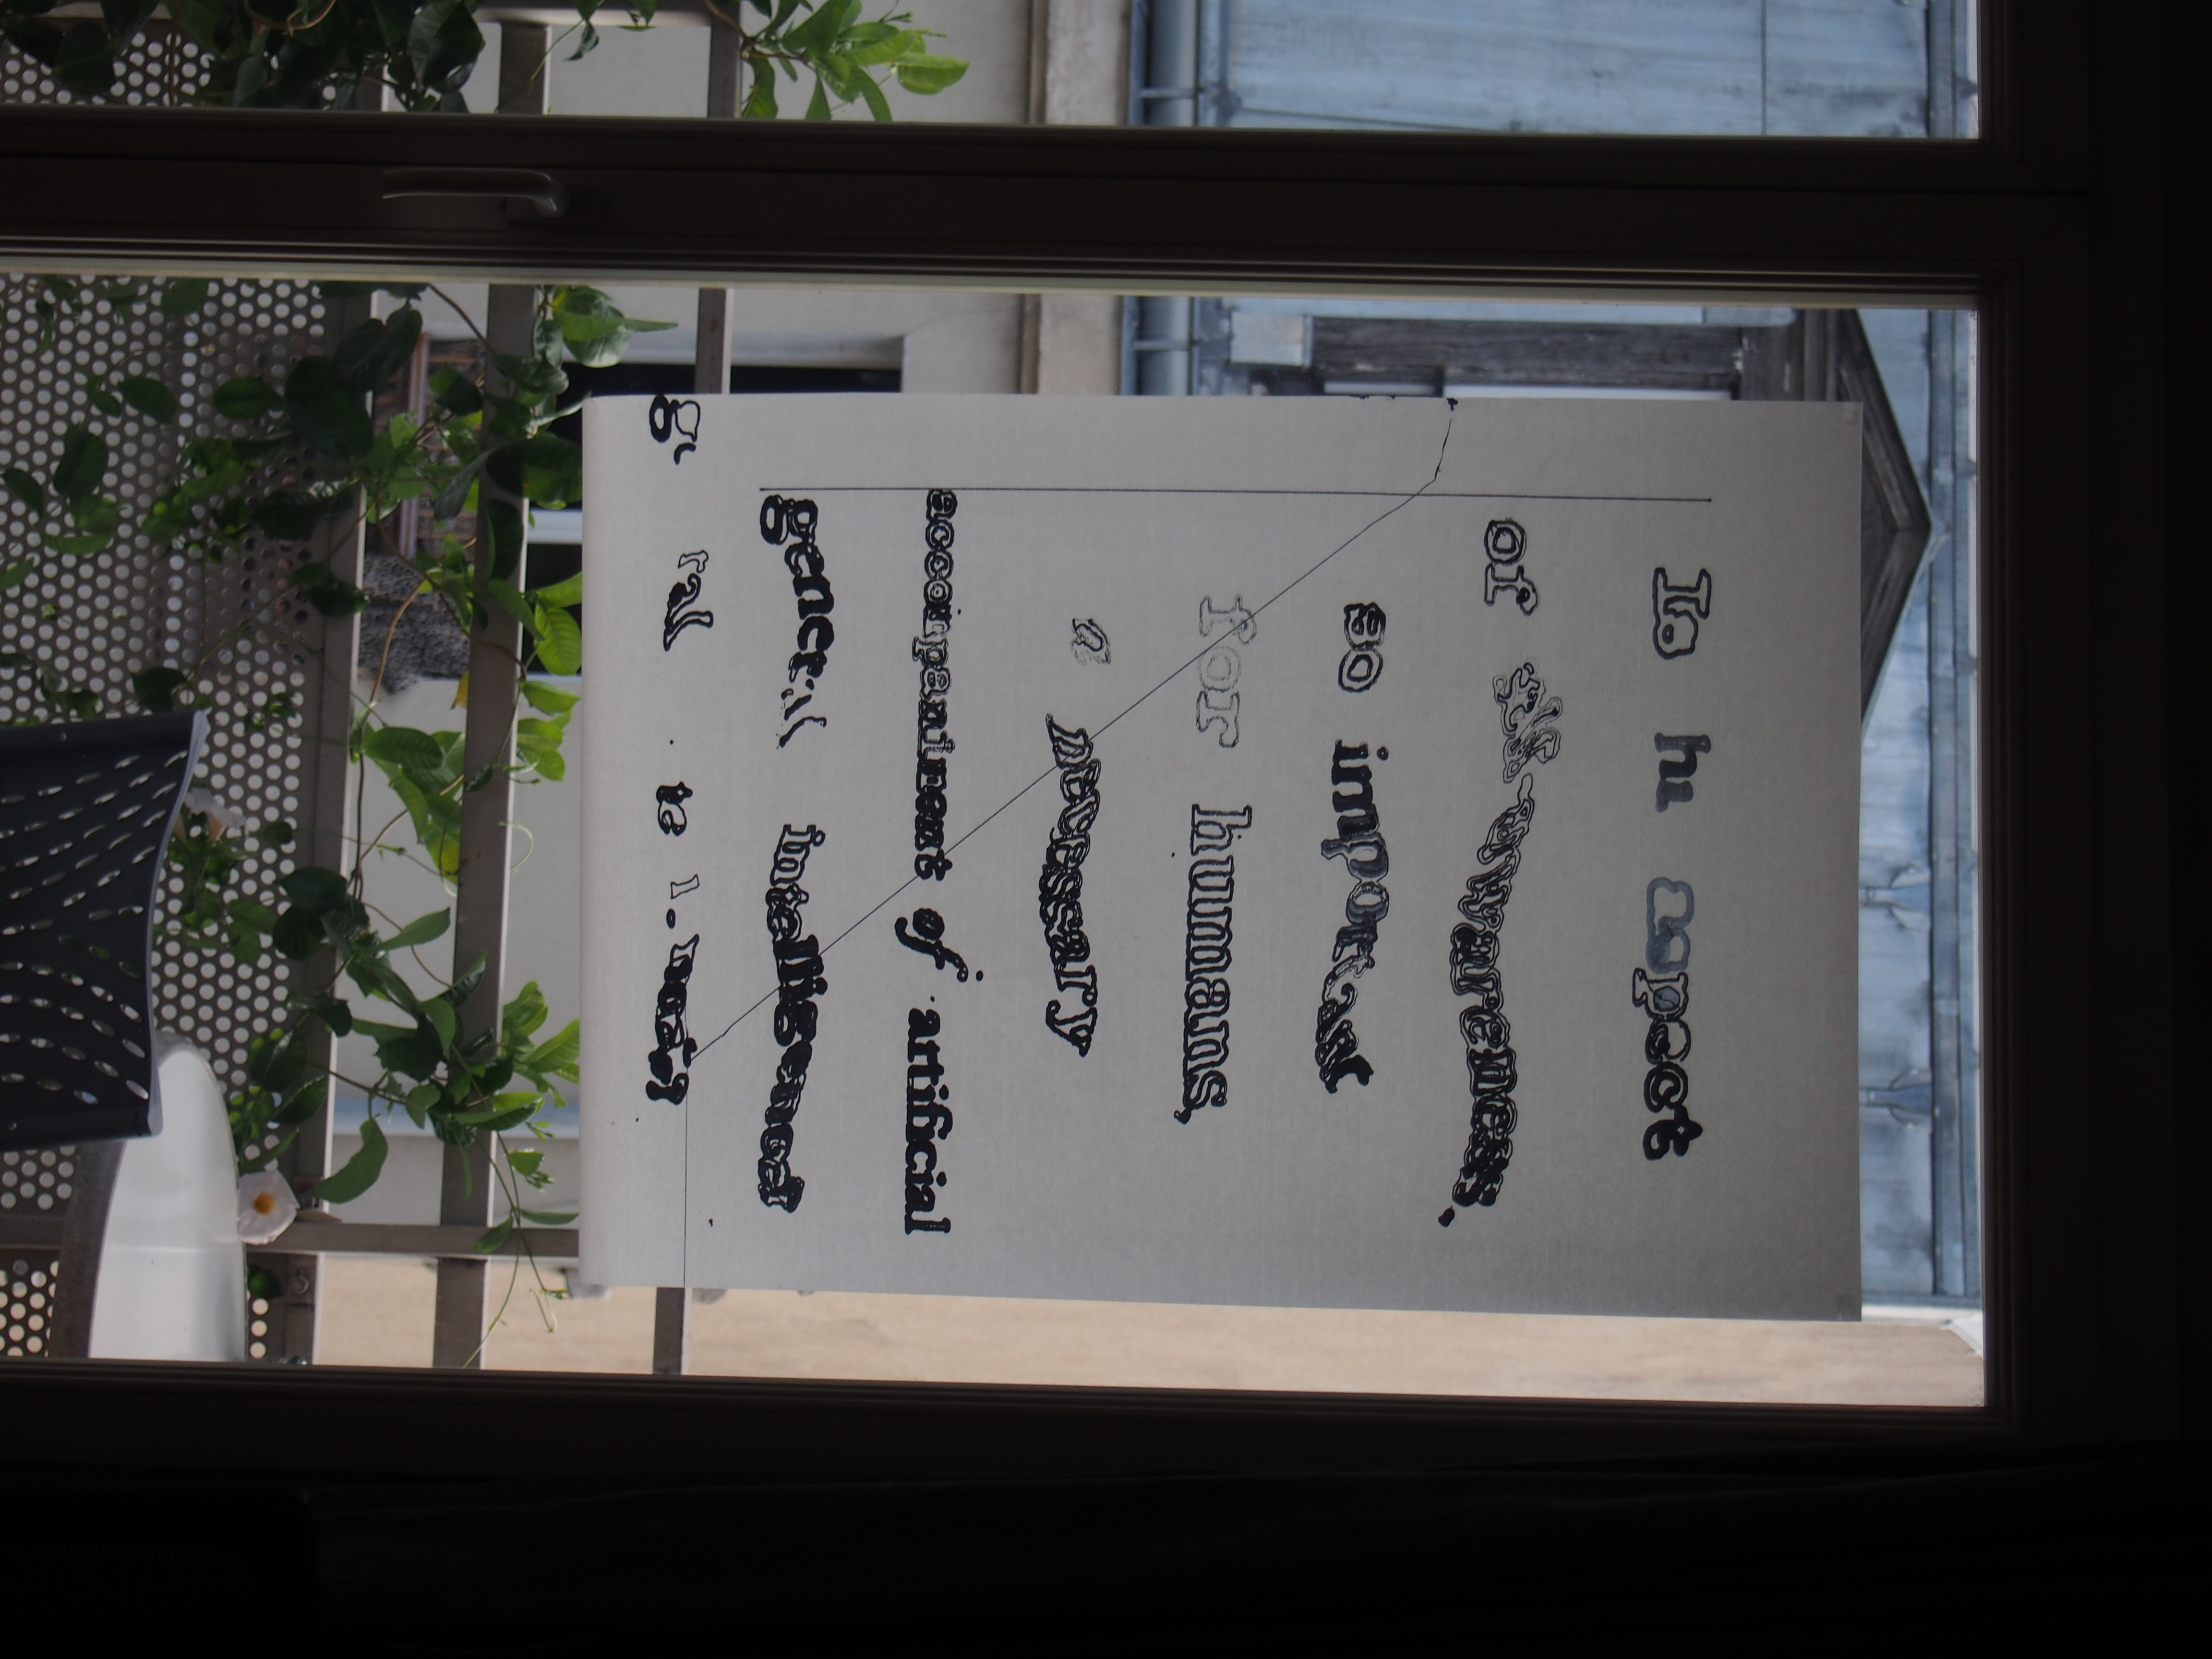 Is hi aspect
of self-awareness,
so important
for humans,
a necessary
accompaniment of artificial
general intelligence?
g ral te l